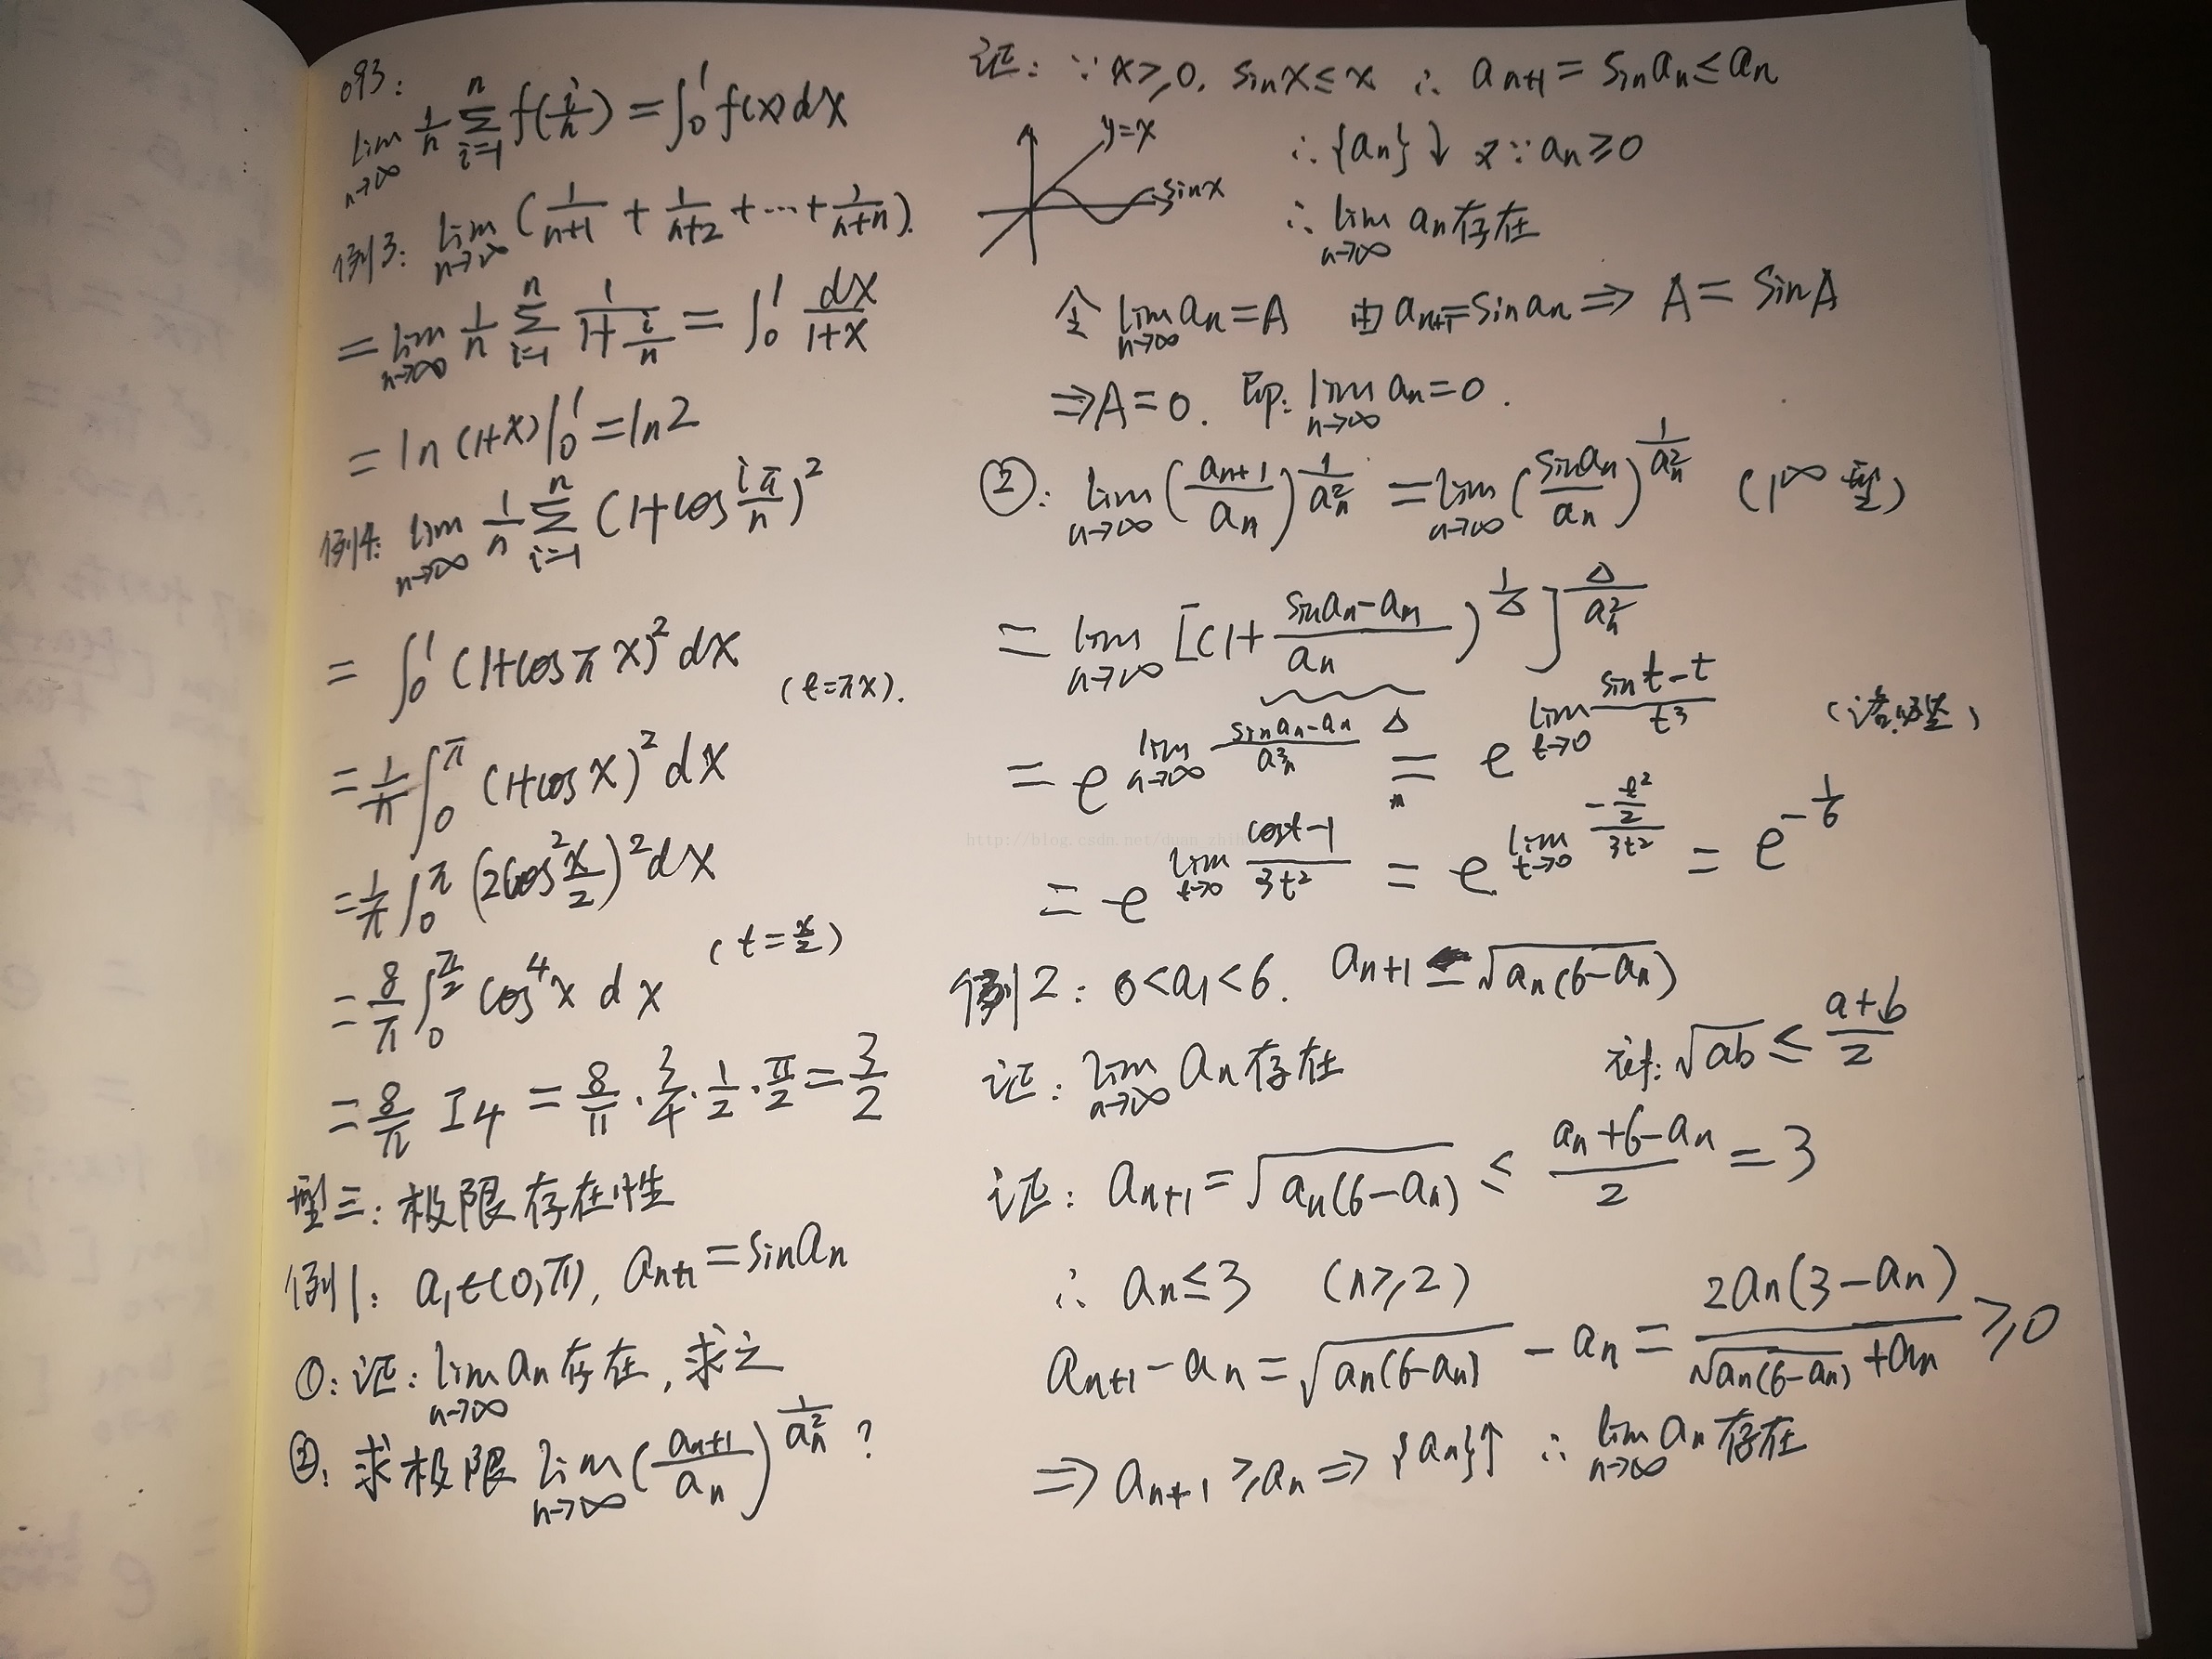 093:
lim n→∞ 1/n Σ i=1 n f(i/n) = ∫₀¹ f(x)dx
例3: lim n→∞ (1/(n+1) + 1/(n+2) + ⋯ + 1/(n+n)).
= lim n→∞ 1/n Σ i=1 n 1/(1+i/n) = ∫₀¹ dx/(1+x)
= ln(1+x)|₀¹ = ln2
例4: lim n→∞ 1/n Σ i=1 n (1+cos iπ/n)²
= ∫₀¹ (1+cosπx)²dx (t=πx).
= 1/π ∫₀^π (1+cosx)²dx
= 1/π ∫₀^π (2cos² x/2)²dx
= 8/π ∫₀^(π/2) cos⁴x dx (t=x/2)
= 8/π I4 = 8/π · 3/4 · 1/2 · π/2 = 3/2
型三: 极限存在性
例1: a₁∈(0,π), aₙ₊₁ = sinaₙ
①: 证: lim n→∞ aₙ 存在, 求之
②: 求极限 lim n→∞ (aₙ₊₁/aₙ)^(1/aₙ²) ?
证: ∵ x≥0, sinx≤x ∴ aₙ₊₁ = sinaₙ ≤ aₙ
y=x
sinx
∴ {aₙ}↓ 又∵ aₙ≥0
∴ lim n→∞ aₙ存在
令 lim n→∞ aₙ=A 由 aₙ₊₁=sinaₙ ⇒ A = sinA
⇒A=0. 即: lim n→∞ aₙ=0.
②: lim n→∞ (aₙ₊₁/aₙ)^(1/aₙ²) = lim n→∞ (sinaₙ/aₙ)^(1/aₙ²) (1^∞ 型)
= lim n→∞ [(1+(sinaₙ-aₙ)/aₙ)^(1/Δ)]^(Δ/aₙ²)
Δ
= e^(lim n→∞ (sinaₙ-aₙ)/aₙ³) = e^(lim t→0 (sint-t)/t³) (洛必达)
= e^(lim t→0 (cost-1)/3t²) = e^(lim t→0 (-t²/2)/3t²) = e^(-1/6)
例2: 0<a₁<6. aₙ₊₁ = √(aₙ(6-aₙ))
证: lim n→∞ aₙ 存在 注: √ab ≤ (a+b)/2
证: aₙ₊₁ = √(aₙ(6-aₙ)) ≤ (aₙ+6-aₙ)/2 = 3
∴ aₙ≤3 (n≥2)
aₙ₊₁-aₙ = √(aₙ(6-aₙ)) - aₙ = 2aₙ(3-aₙ)/(√(aₙ(6-aₙ))+aₙ) ≥0
⇒ aₙ₊₁ ≥aₙ ⇒ {aₙ}↑ ∴ lim n→∞ aₙ 存在